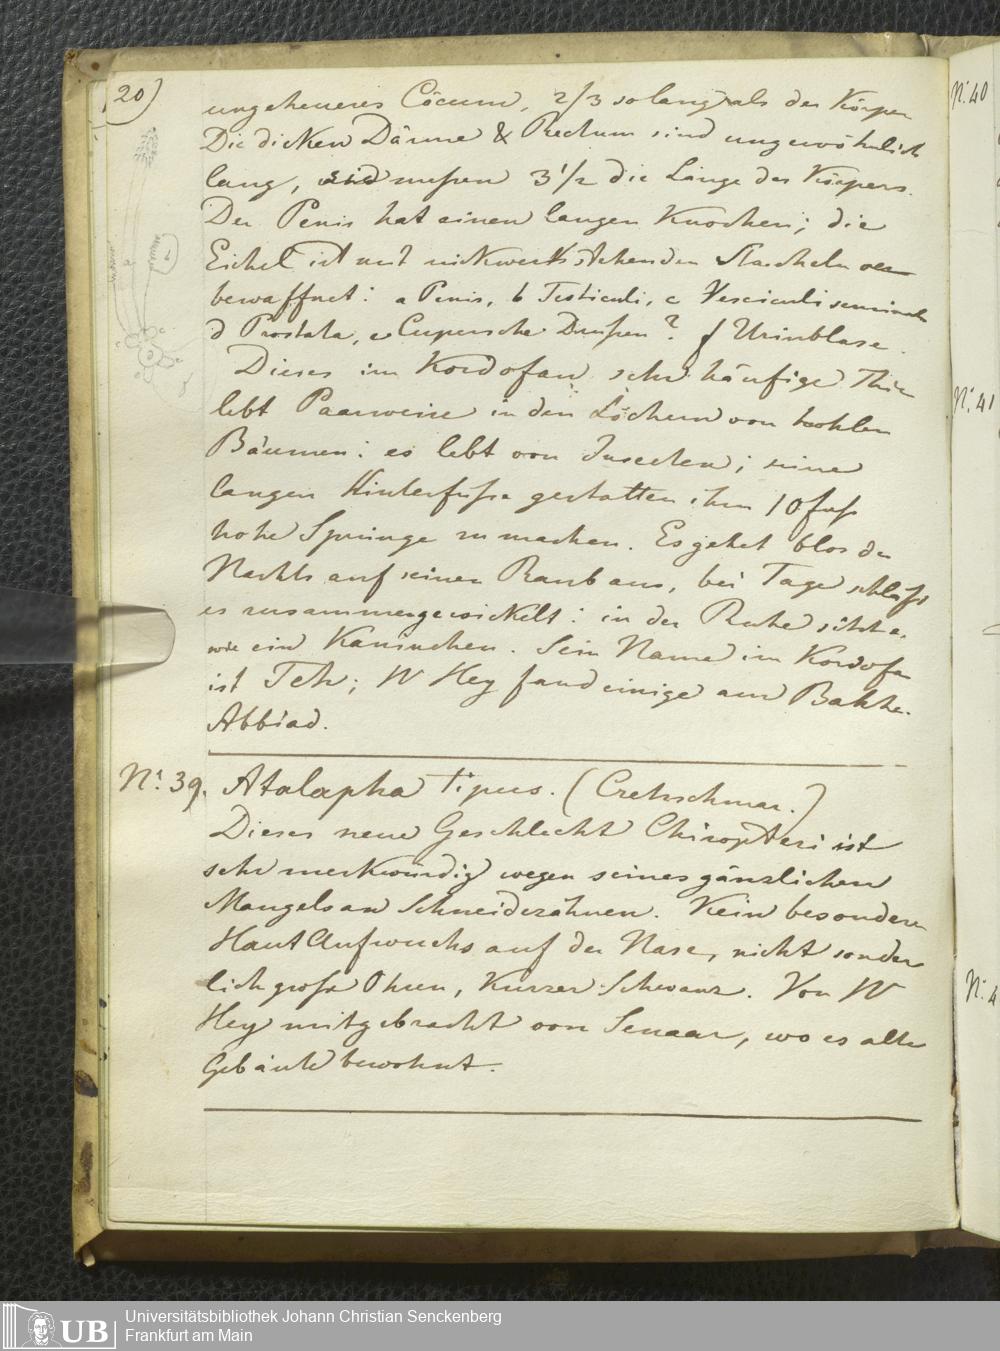 20)
ungeheueres Cöcum, 2/3 so lang als der Körper
Die dicken Därme & Rectum sind ungewöhnlich
lang, sind messen 3 1/2 die Länge des Körpers.
Der Penis hat einen langen Knochen; die
Eichel ist mit rückwerts stehenden Stacheln
bewaffnet: a Penis, b Testiculi, c Vesciculi seminal
d Prostata, e Cupersche Drusen? f Urinblase.
Dieses im Kordofan sehr häufige Thier
lebt Paarweise in den Löchern von hohlen
Bäumen: es lebt von Insecten; seine
langen Hinterfüsse gestatten ihm 10 fuss
hohe Sprünge zu machen. Es gehet blos des
Nachts auf seinen Raub aus, bei Tage schläft
es zusammengewickelt: in der Ruhe sitzt es
wie ein Kaninchen. Sein Name im Kordofan
ist Teh; W Hey fand einige am Bahhe.
Abbiad.
N: 39. Atalapha tipus. (Cretzschmar.)
Dieses neue Geschlecht Chiropteri ist
sehr merkwürdig wegen seines gänzlichen
Mangels an Schneidezähnen. Kein besonderer
Haut Aufwuchs auf der Nase, nicht sonder
lich grosse Ohren, Kurzer Schwanz. Von W
Hey mitgebracht von Senaar, wo es alte
Gebäude bewohnt.
N: 40
N: 41
N: 4
UB
Universitätsbibliothek Johann Christian Senckenberg
Frankfurt am Main